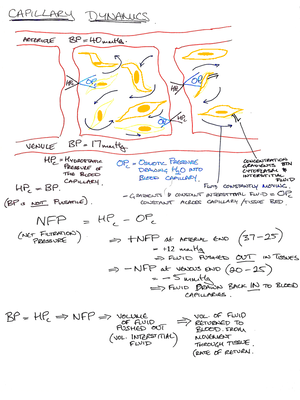 CAPILLARY DYNAMICS.
ARTERIOLE BP = 40mmHg.
HPc OPc OPc HPc
HPc OPc
VENULE BP = 17mmHg.
HPc = HYDROSTATIC PRESSURE OF THE BLOOD CAPILLARY.
OPc = OSMOTIC PRESSURE DRAWING H2O INTO BLOOD CAPILLARY.
CONCENTRATION GRADIENTS BTN CYTOPLASM & INTERSTITIAL FLUID
FLUID CONSTANTLY MOVING.
HPc = BP.
(BP IS NOT PULSATILE)
= GRADIENTS & CONSTANT INTERSTITIAL FLUID = OPc CONSTANT ACROSS CAPILLARY/TISSUE BED.
NFP = HPc - OPc
(NET FILTRATION PRESSURE)
⇒ +NFP AT ARTERIAL END (37-25)
= +12 mmHg
⇒ FLUID PUSHED OUT IN TISSUES
⇒ -NFP AT VENOUS END (20-25)
= -5 mmHg
⇒ FLUID DRAWN BACK IN TO BLOOD CAPILLARIES.
BP = HPc ⇒ NFP ⇒ VOLUME OF FLUID PUSHED OUT (VOL. INTERSTITIAL FLUID)
⇒ VOL OF FLUID RETURNED TO BLOOD FROM MOVEMENT THROUGH TISSUE. (RATE OF RETURN).